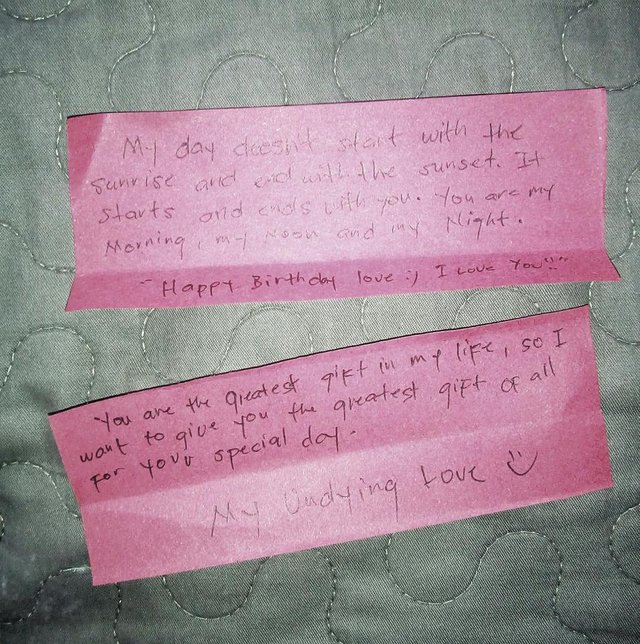 My day doesn't start with the
sunrise and end with the sunset. It
starts and ends with you. You are my
Morning, my Noon and my Night.
"Happy Birthday love :) I Love You!!"
You are the greatest gift in my life, so I
want to give you the greatest gift of all
for your special day.
My Undying Love :)